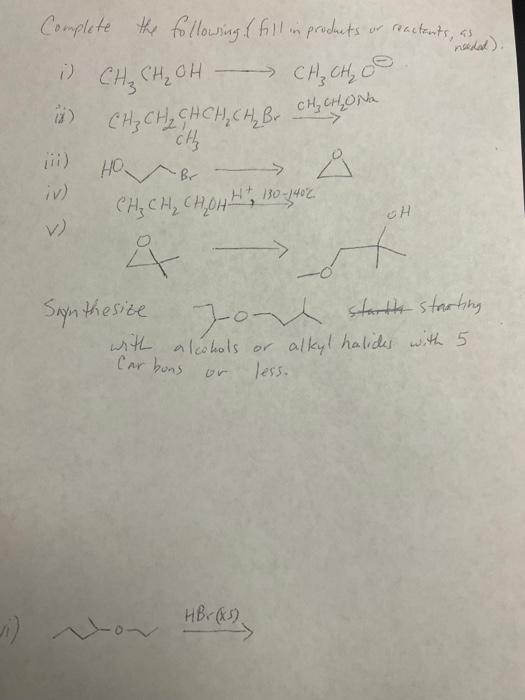 Complete the following (fill in products or reactants, as needed).
i) CH3CH2OH → CH3CH2O⊖
ii) CH3CH2CHCH2CH2Br CH3CH2ONa →
CH3
iii) HO Br → O
iv) CH3CH2CH2OH H+, 130-140°C →
v) O → O OH
Synthesize O starting
with alcohols or alkyl halides with 5
Carbons or less.
vi) O HBr(xs) →